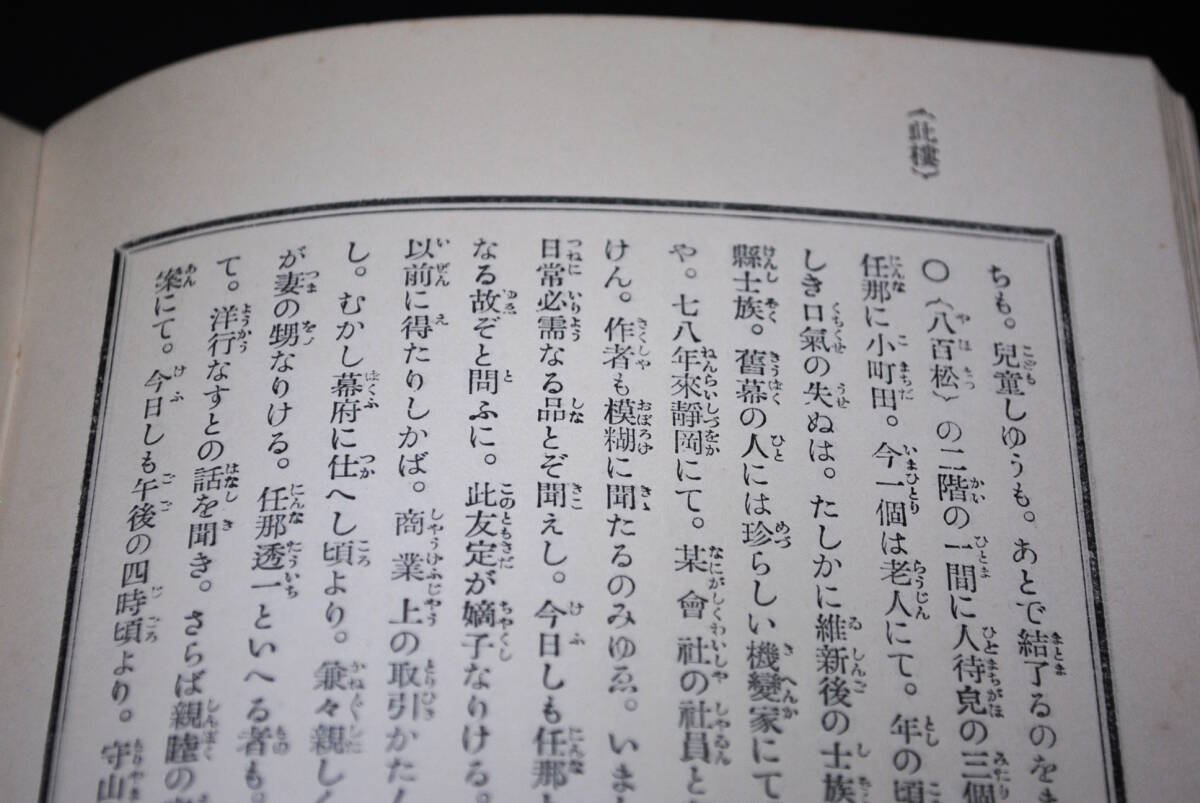 (此樓)
ちも。兒童しゆうも。あとで結了るのをま
〇(八百松)の二階の一間に人待皃の三個
任那に小町田。今一個は老人にて。年の頃
しき口氣の失ぬは。たしかに維新後の士族
縣士族。舊幕の人には珍らしい機變家にて
や。七八年來靜岡にて。某會社の社員と
けん。作者も模糊に聞たるのみゆゑ。いま
日常必需なる品とぞ聞えし。今日しも任那
なる故ぞと問ふに。此友定が嫡子なりける。
以前に得たりしかば。商業上の取引かたん
し。むかし幕府に仕へし頃より。兼々親しく
が妻の甥なりける。任那透一といへる者も。
て。洋行なすとの話を聞き。さらば親睦の
案にて。今日しも午後の四時頃より。守山